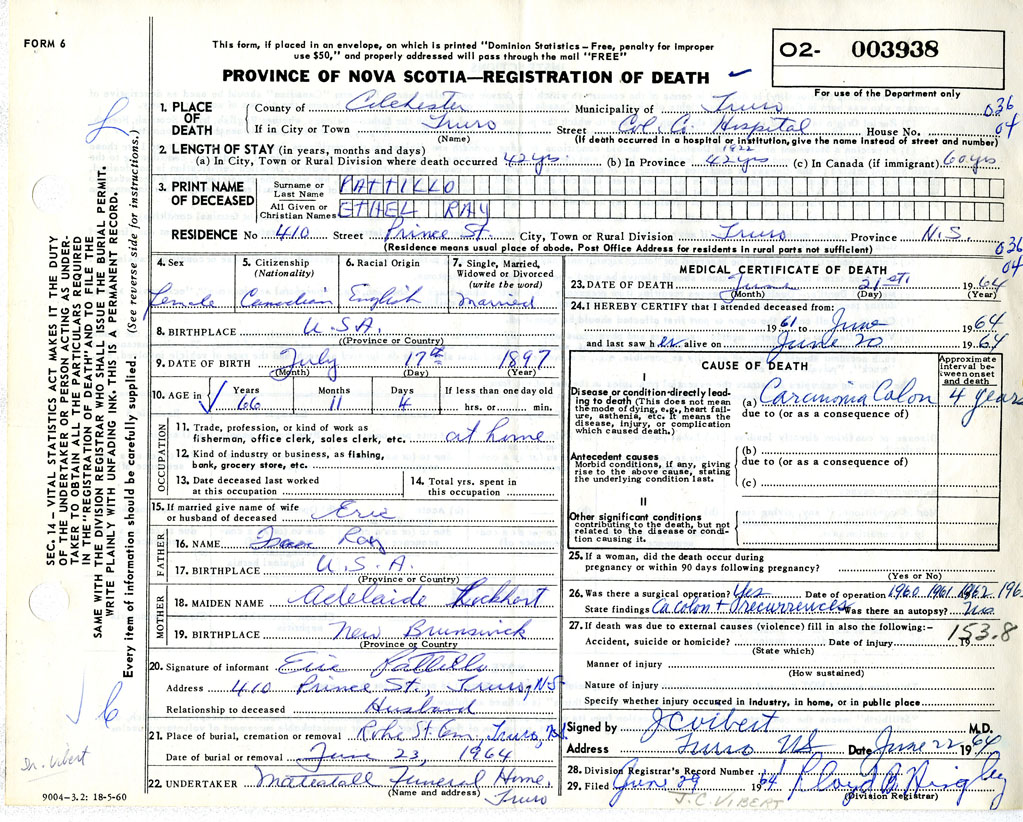 FORM 6
This form, if placed in an envelope, on which is printed "Dominion Statistics—Free, penalty for improper
use $50," and properly addressed will pass through the mail "FREE"
O2- 003938
For use of the Department only
PROVINCE OF NOVA SCOTIA—REGISTRATION OF DEATH
1. PLACE OF DEATH
County of Colchester Municipality of Truro 036
If in City or Town Truro Street Col. Co. Hospital House No. 04
(Name) (If death occurred in a hospital or institution, give the name instead of street and number)
2. LENGTH OF STAY (in years, months and days) 1922
(a) In City, Town or Rural Division where death occurred 42 yrs. (b) In Province 42 yrs (c) In Canada (if immigrant) 60 yrs
3. PRINT NAME OF DECEASED
Surname or Last Name PATTILLO
All Given or Christian Names ETHEL RAY
RESIDENCE No 410 Street Prince St. City, Town or Rural Division Truro Province N.S.
(Residence means usual place of abode. Post Office Address for residents in rural parts not sufficient)
036
04
4. Sex
Female
5. Citizenship (Nationality)
Canadian
6. Racial Origin
English
7. Single, Married, Widowed or Divorced (write the word)
Married
8. BIRTHPLACE U.S.A.
(Province or Country)
9. DATE OF BIRTH July 17th 1897
(Month) (Day) (Year)
10. AGE in Years Months Days If less than one day old
66 11 4 hrs. or min.
OCCUPATION
11. Trade, profession, or kind of work as
fisherman, office clerk, sales clerk, etc. at home
12. Kind of industry or business, as fishing,
bank, grocery store, etc.
13. Date deceased last worked
at this occupation
14. Total yrs. spent in
this occupation
15. If married give name of wife
or husband of deceased Eric
FATHER
16. NAME Ray
17. BIRTHPLACE U.S.A.
(Province or Country)
MOTHER
18. MAIDEN NAME Adelaide Lockhart
19. BIRTHPLACE New Brunswick
(Province or Country)
20. Signature of informant Eric Pattillo
Address 410 Prince St., Truro, N.S.
Relationship to deceased Husband
21. Place of burial, cremation or removal Robie St. Cem. Truro,
Date of burial or removal June 23, 1964
22. UNDERTAKER Mattatall Funeral Home,
(Name and address) Truro
MEDICAL CERTIFICATE OF DEATH
23. DATE OF DEATH June 21st 1964
(Month) (Day) (Year)
24. I HEREBY CERTIFY that I attended deceased from:
1961 to June 1964
and last saw her alive on June 20 1964
CAUSE OF DEATH
Approximate interval between onset and death
I
Disease or condition directly leading to death (This does not mean the mode of dying, e.g., heart failure, asthenia, etc. It means the disease, injury, or complication which caused death.)
(a) Carcinoma Colon 4 years
due to (or as a consequence of)
Antecedent causes
Morbid conditions, if any, giving rise to the above cause, stating the underlying condition last.
(b)
due to (or as a consequence of)
(c)
II
Other significant conditions
contributing to the death, but not related to the disease or condition causing it.
25. If a woman, did the death occur during
pregnancy or within 90 days following pregnancy?
(Yes or No)
26. Was there a surgical operation? Yes Date of operation 1960 1961 1962 196
State findings Ca colon + recurrences Was there an autopsy? No
27. If death was due to external causes (violence) fill in also the following:— 153.8
Accident, suicide or homicide? Date of injury 19
(State which)
Manner of injury
(How sustained)
Nature of injury
Specify whether injury occurred in Industry, in home, or in public place
Signed by J C Vibert M.D.
Address Truro NS Date June 22 1964
28. Division Registrar's Record Number
29. Filed June 29 1964 Lloyd
(Division Registrar)
J.C. VIBERT
SEC. 14—VITAL STATISTICS ACT MAKES IT THE DUTY
OF THE UNDERTAKER OR PERSON ACTING AS UNDER-
TAKER TO OBTAIN ALL THE PARTICULARS REQUIRED
IN THE "REGISTRATION OF DEATH" AND TO FILE THE
SAME WITH THE DIVISION REGISTRAR WHO SHALL ISSUE THE BURIAL PERMIT.
WRITE PLAINLY WITH UNFADING INK. THIS IS A PERMANENT RECORD.
Every item of information should be carefully supplied. (See reverse side for instructions.)
Dr. Vibert
9004-3.2: 18-5-60